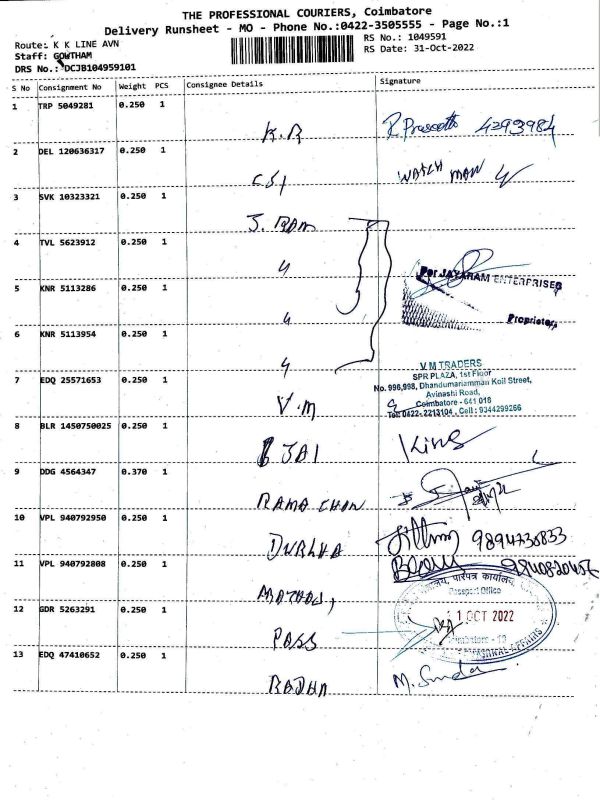 THE PROFESSIONAL COURIERS, Coimbatore
Delivery Runsheet - MO - Phone No.:0422-3505555 - Page No.:1
Route: K K LINE AVN
RS No.: 1049591
Staff: GOWTHAM
RS Date: 31-Oct-2022
DRS No.: DCJB104959101
S No Consignment No Weight PCS Consignee Details Signature
1 TRP 5049281 0.250 1
K.R
2 DEL 120636317 0.250 1
CSI WATCH MAN
3 SVK 10323321 0.250 1
J. RAM
4 TVL 5623912 0.250 1
4
For JAYARAM ENTERPRISES
5 KNR 5113286 0.250 1
4
Proprietor
6 KNR 5113954 0.250 1
4
V M TRADERS
SPR PLAZA, 1st Floor
7 EDQ 25571653 0.250 1
No. 996,998, Dhandumariamman Koil Street,
Avinashi Road,
V.M
Coimbatore - 641 018
Tel: 0422- 2213104, Cell: 9344299266
8 BLR 1450750025 0.250 1
JAI King
9 DDG 4564347 0.370 1
RAMA CHON
10 VPL 940792950 0.250 1
DURLHA 9894730833
11 VPL 940792808 0.250 1
पारपत्र कार्यालय
Passport Office
12 GDR 5263291 0.250 1
1 OCT 2022
PASS
13 EDQ 47410652 0.250 1
RADHA M. Sunda